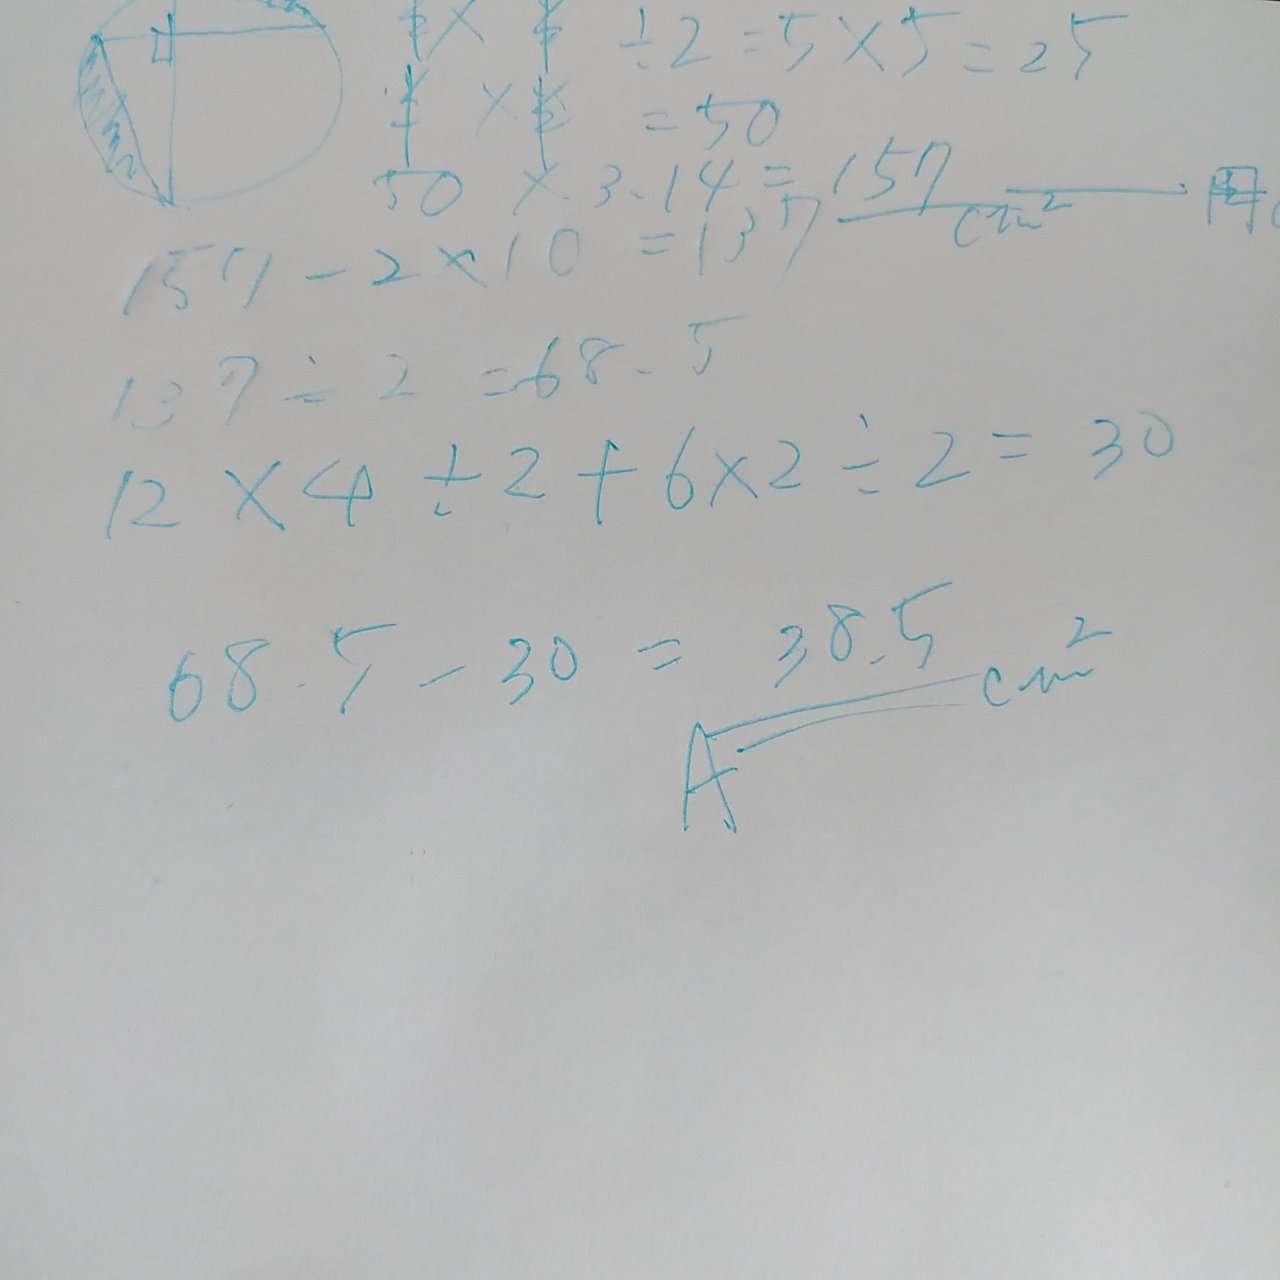 ÷2=5×5=25
=50
50 × 3.14=157 cm²
157-2×10=137
137÷2=68.5
12×4÷2+6×2÷2=30
68.5-30=38.5cm²
A